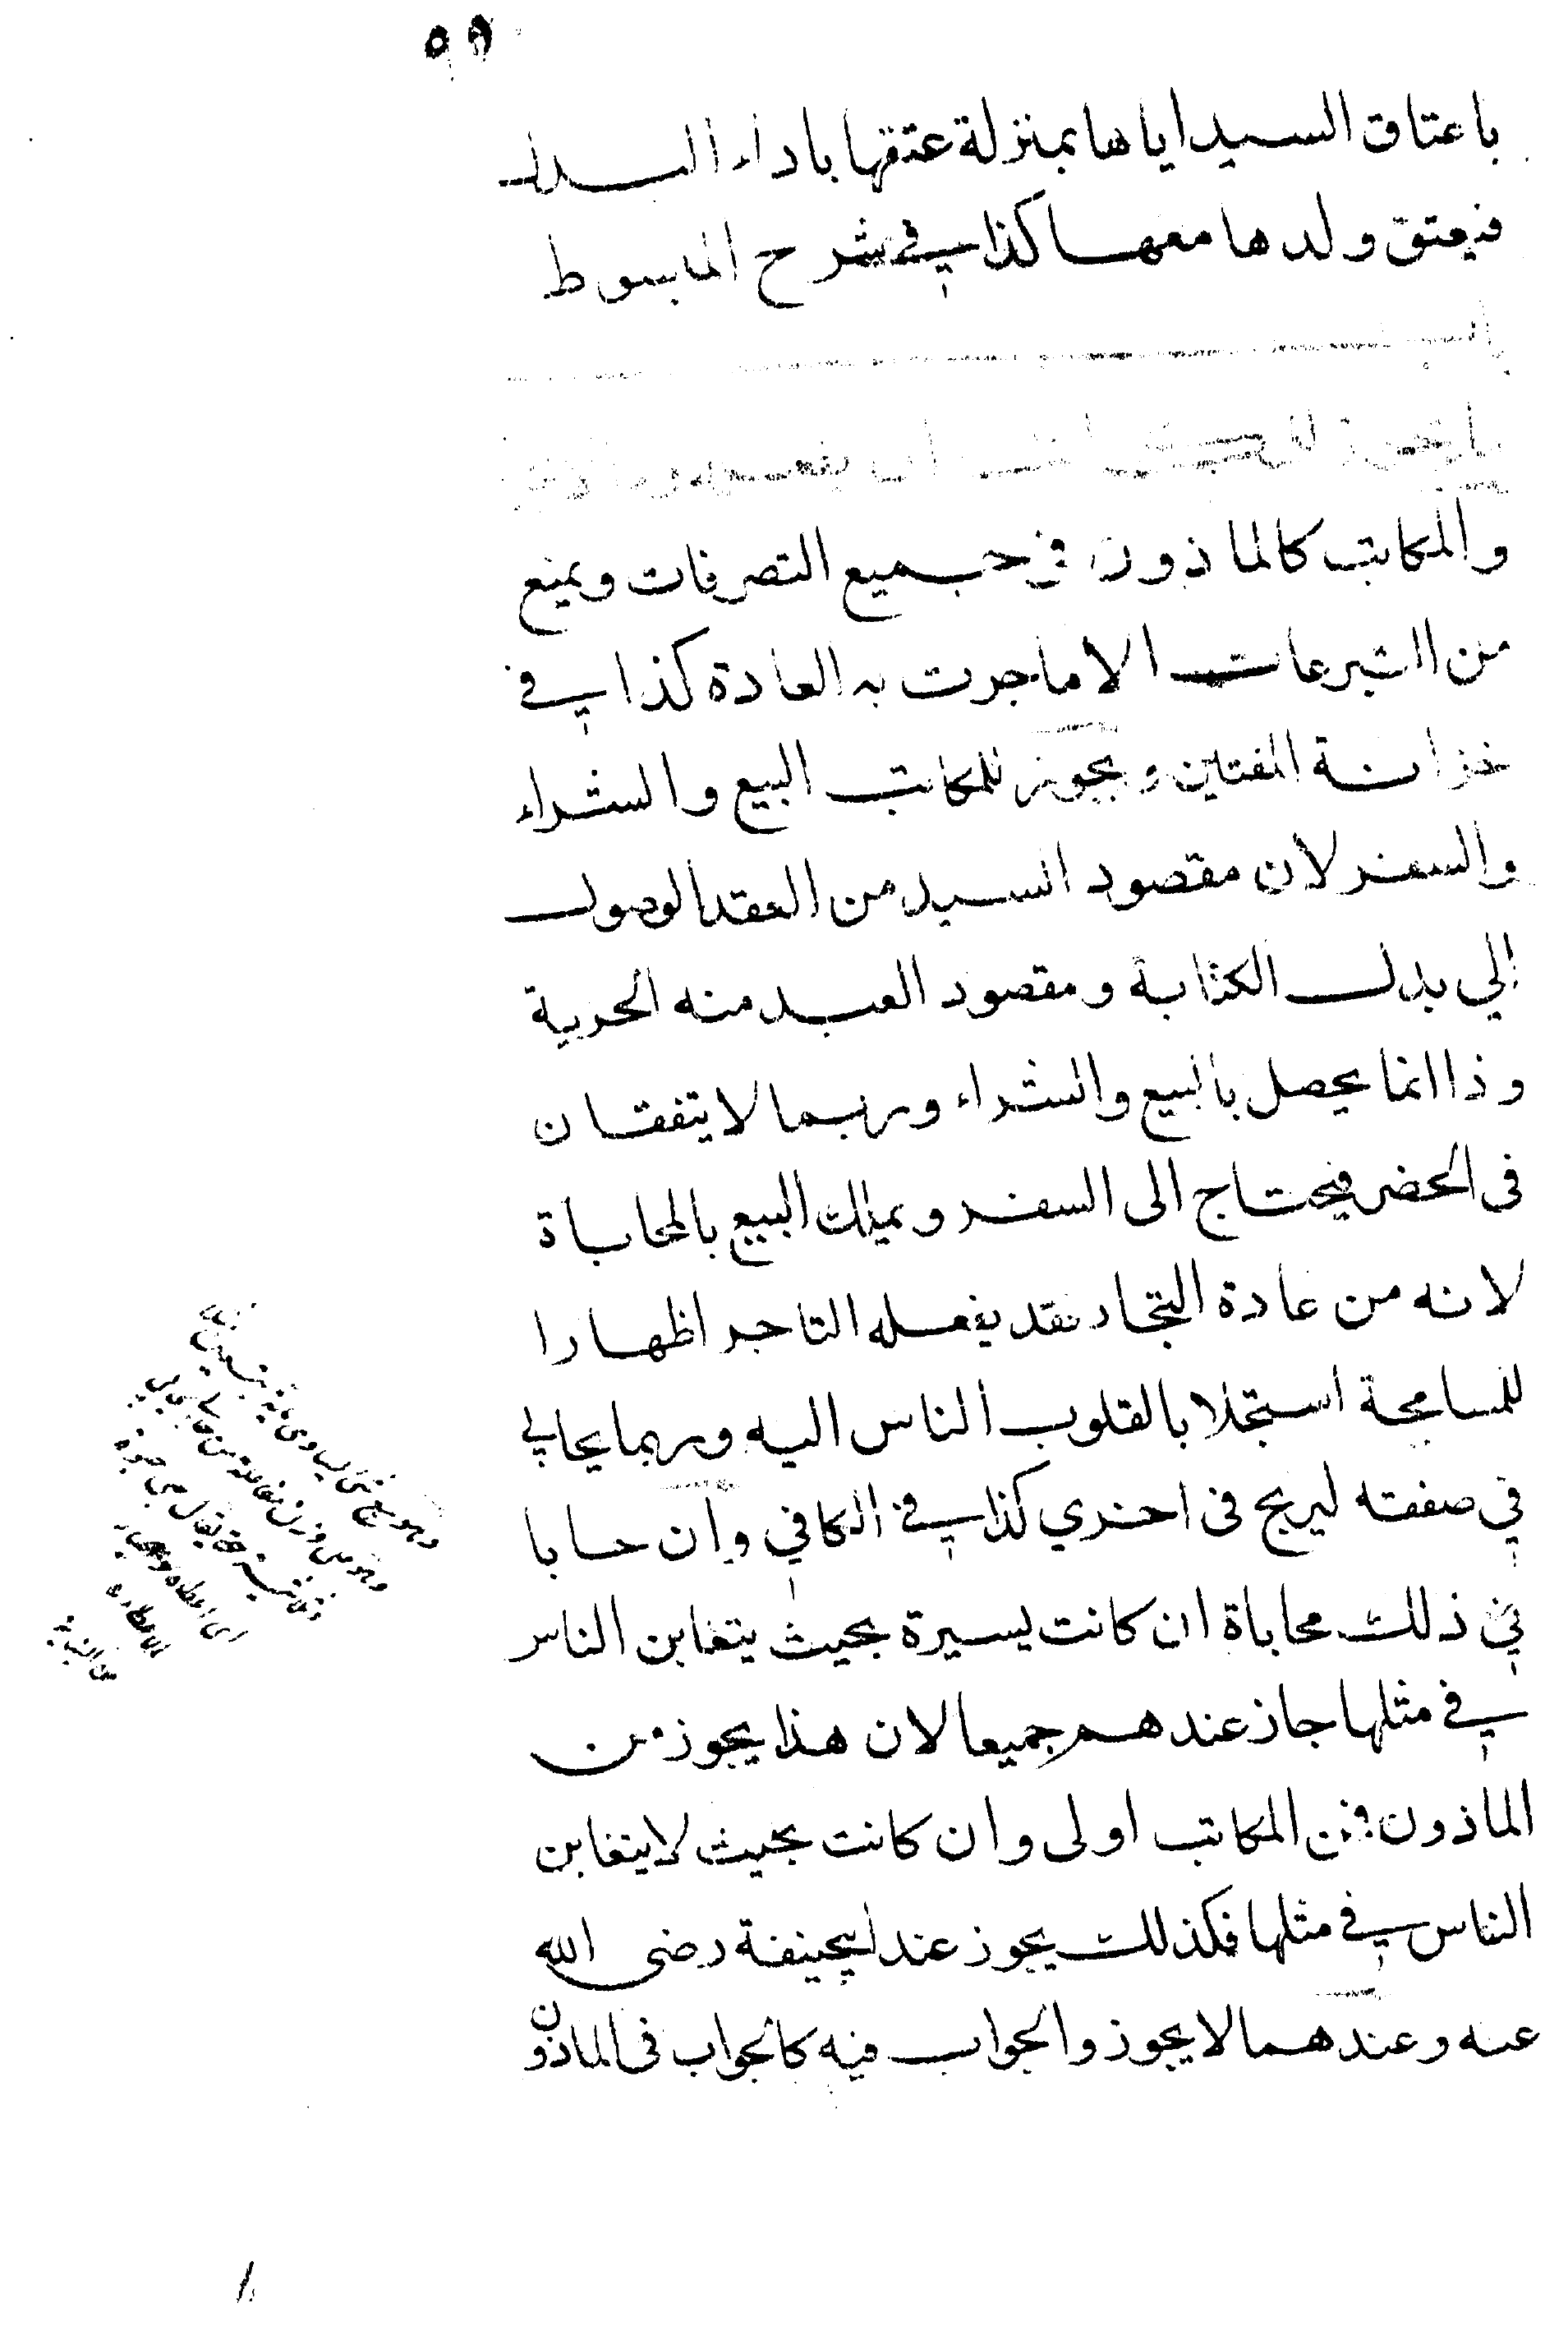 باعتاق السيد اياها بمنزلة عتقها باداء البدل
فيعتق ولدها معها كذا في شرح المبسوط
والمكاتب كالماذون في جميع التصرفات ويمنع
من التبرعات الا ما جرت به العادة كذا في
خزانة المفتين ويجوز للمكاتب البيع والشراء
والسفر لان مقصود السيد من العقد الوصول
الي بدل الكتابة ومقصود العبد منه الحرية
وذا انما يحصل بالبيع والشراء وربما لا يتفقان
في الحضر فيحتاج الى السفر ويملك البيع بالمحاباة
لانه من عادة التجار فقد يفعله التاجر اظهارا
للمسامحة استجلابا لقلوب الناس اليه وربما يحابي
في صفقته ليربح في اخري كذا في الكافي وان حابا
في ذلك محاباة ان كانت يسيرة بحيث يتغابن الناس
في مثلها جاز عندهم جميعا لان هذا يجوز من
الماذون فمن المكاتب اولى وان كانت بحيث لا يتغابن
الناس في مثلها فكذلك يجوز عند ابيحنيفة رضى الله
عنه وعندهما لا يجوز والجواب فيه كالجواب في الماذون